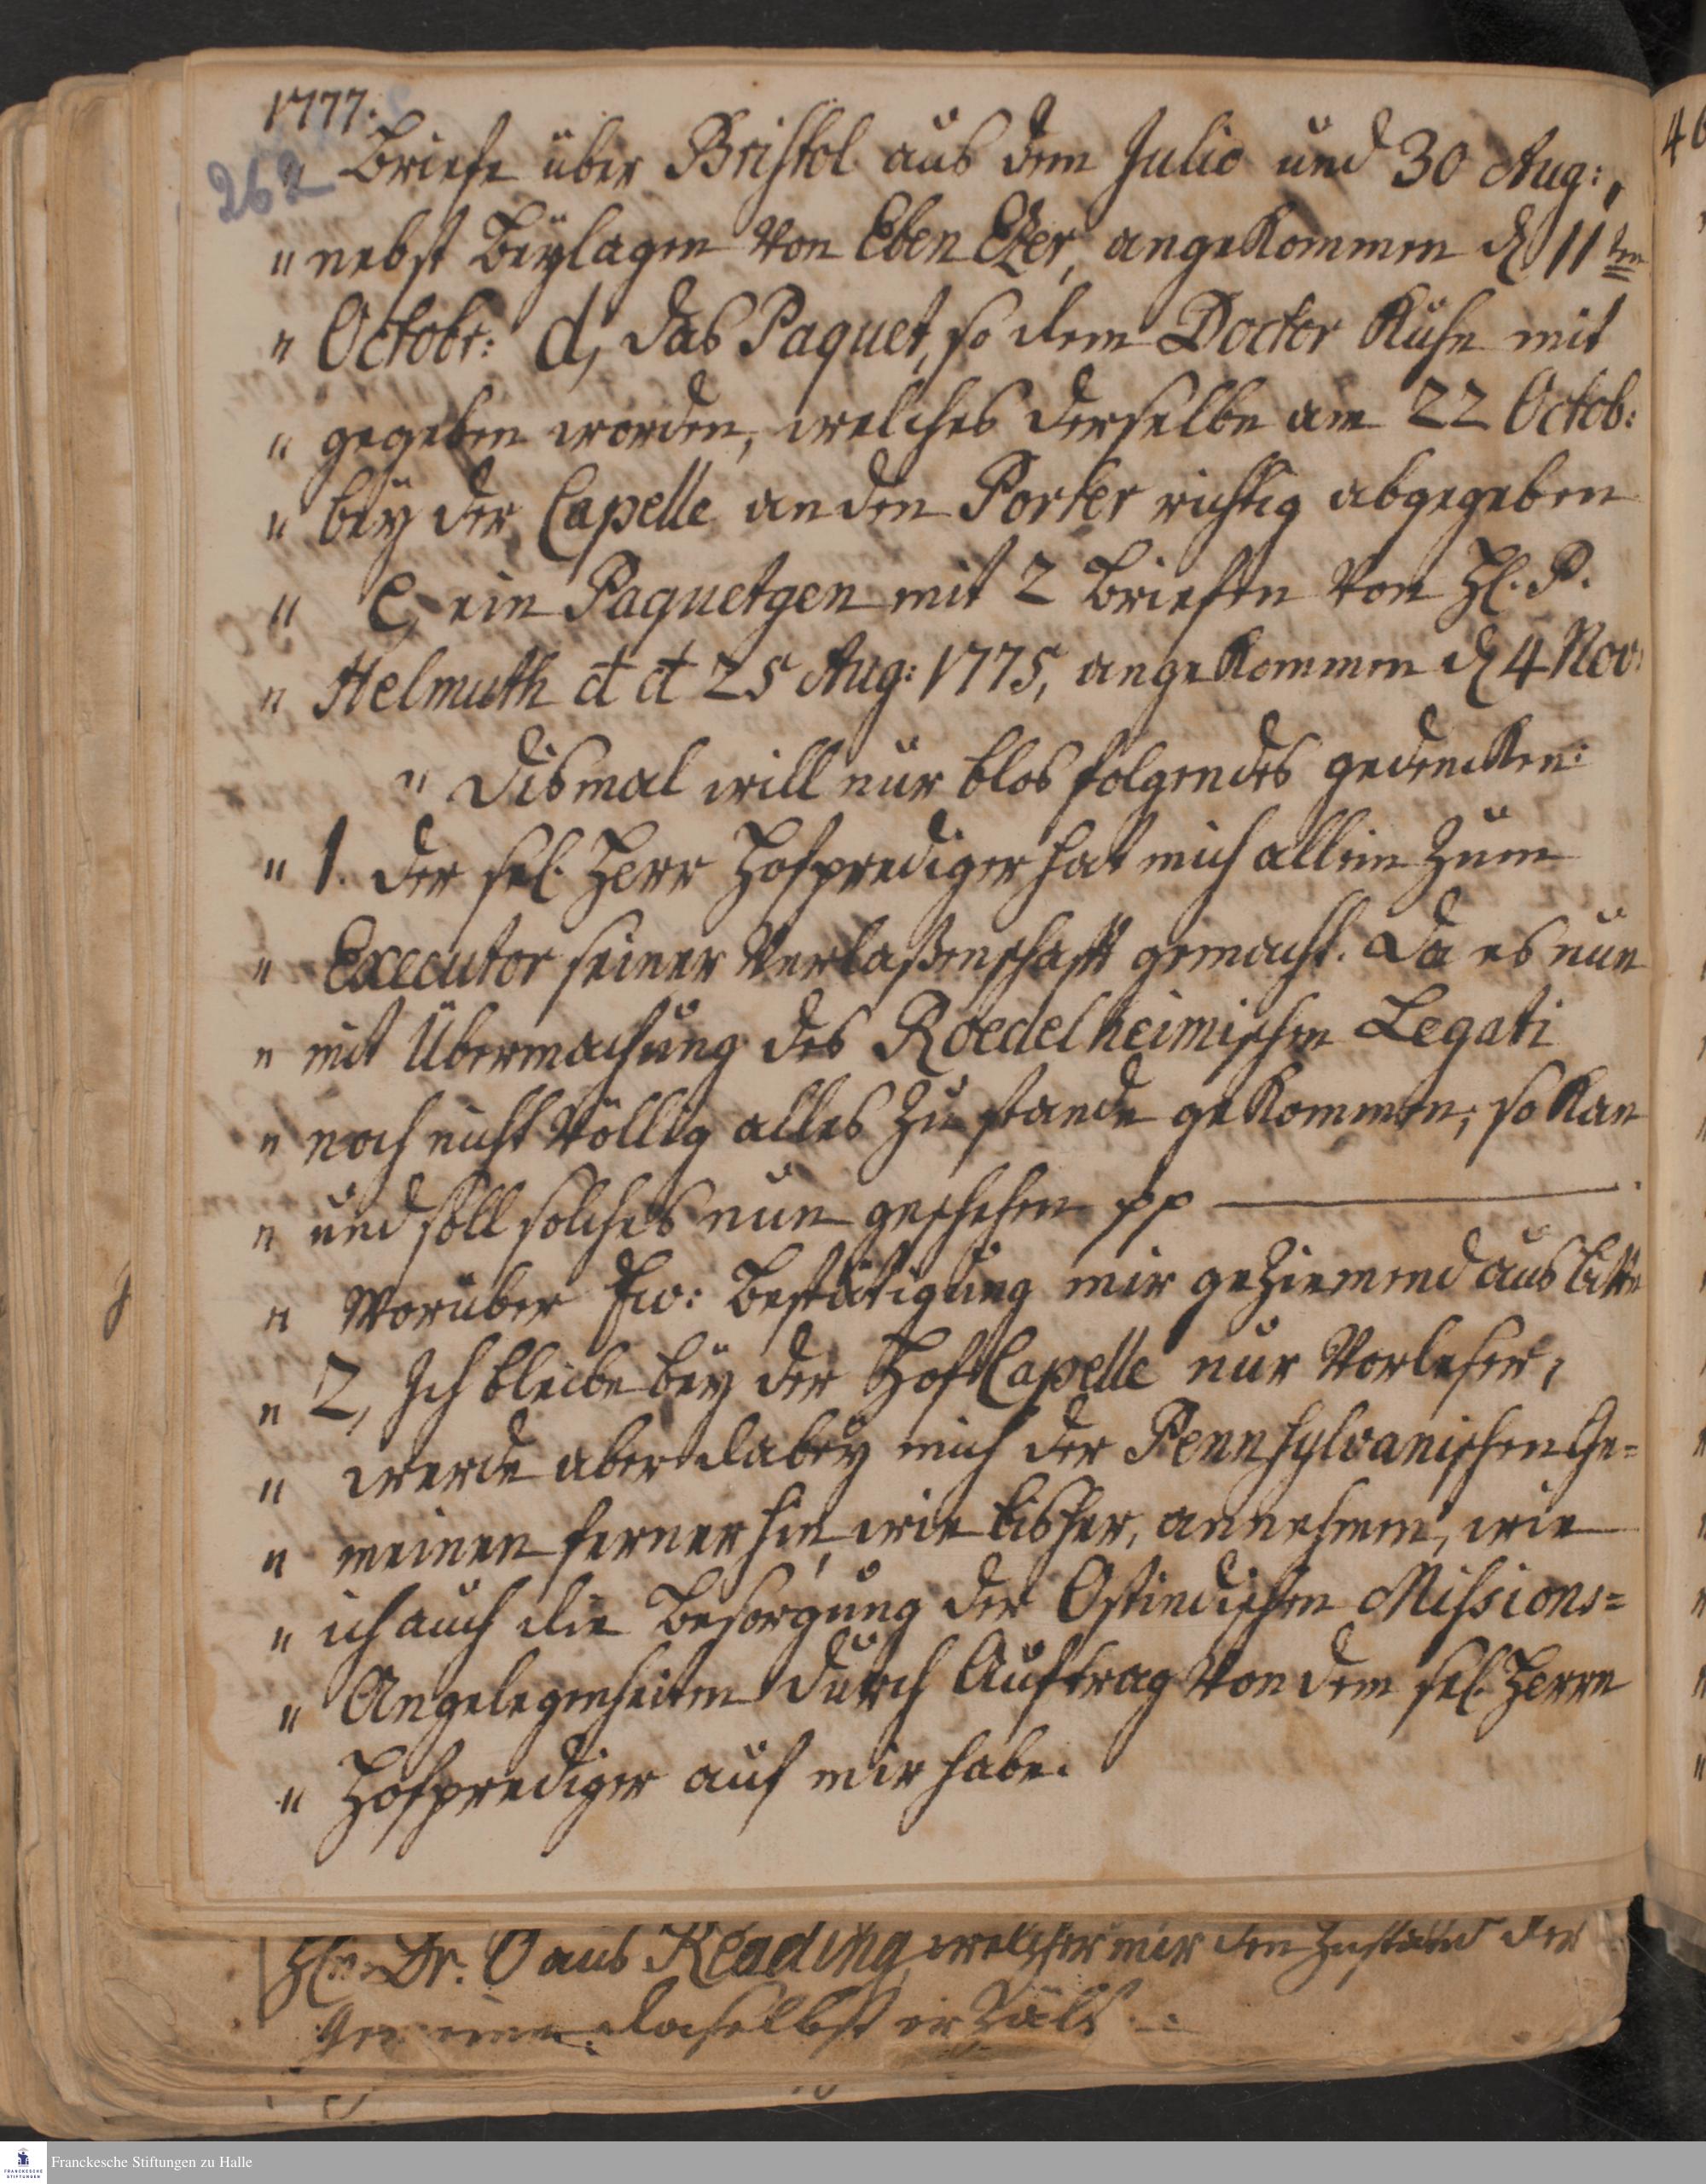 1777.
262
" Briefe über Bristol aus dem Julio und 30 Aug:,
" nebst Beylagen von Eben Ezer, angekommen d 11ten
" Octobr: d, das Paquet, so dem Doctor Kuhn mit
" gegeben worden, welches derselbe am 22 Octob:
" bey der Capelle an den Porter richtig abgegeben
" e, ein Paquetgen mit 2 Briefen von H. P.
" Helmuth d d 25 Aug: 1775, angekommen d 4 Nov:
" Dismal will nur blos folgendes gedencken:
" 1. der sel. Herr Hofprediger hat mich allein zum
" Executor seiner Verlaßenschaft gemacht. Da es nun
" mit Übermachung des Roedelheimischen Legati
" noch nicht völlig alles zu stande gekommen, so kan
" und soll solches nun geschehen pp
" Worüber Ew: Bestätigung mir geziemend ausbitte
" 2, Ich bleibe bey der Hof Capelle nur Vorleser,
" werde aber dabey mich der Pennsylvanischen Ge=
" meinen fernerhin, wie bisher, annehmen, wie
" ich auch die Besorgung der Ostindischen Missions=
" Angelegenheiten durch Auftrag von dem sel. Herrn
" Hofprediger auf mir habe.
Hn. Dr. O aus Reading welcher mir den Zustand der
Gemeinen daselbst erzält
Franckesche Stiftungen zu Halle
FRANCKESCHE
STIFTUNGEN